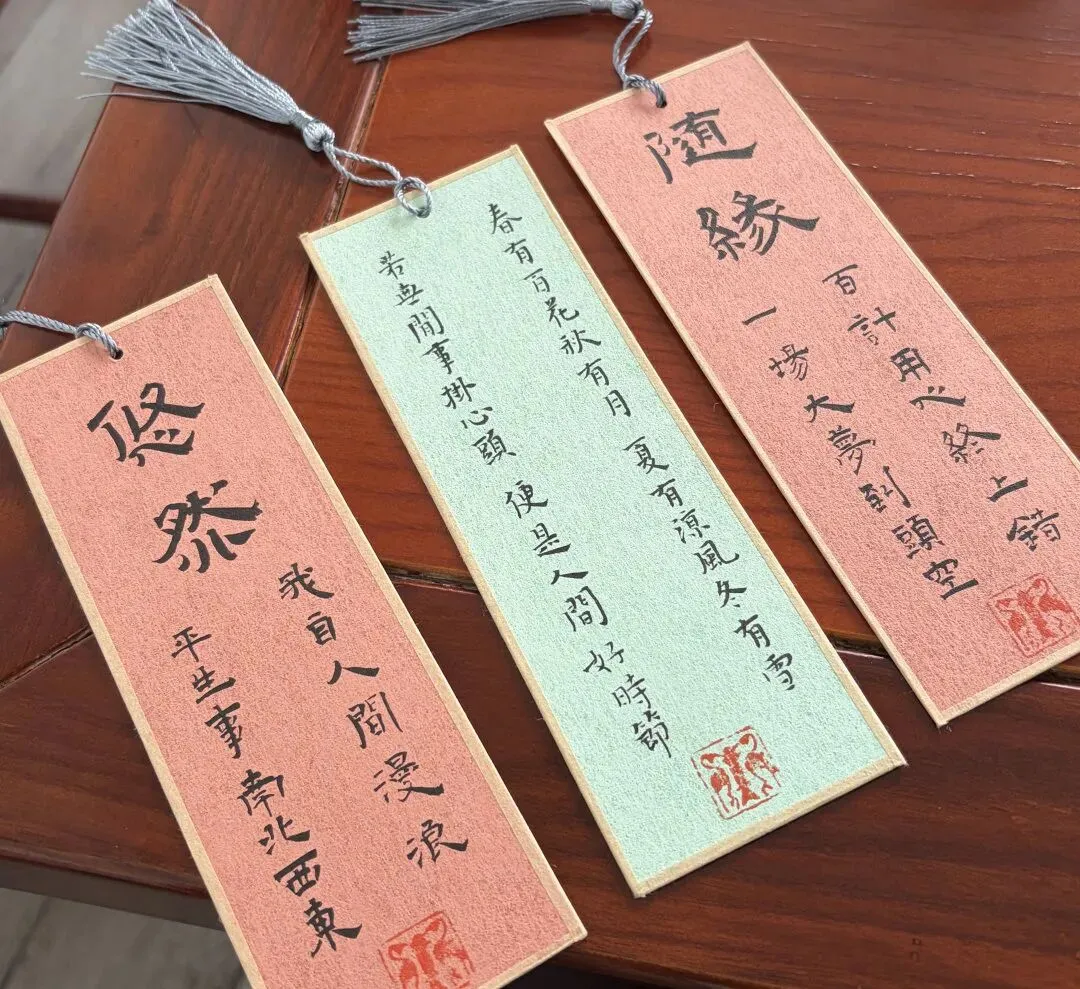 悠然
我自人間漫浪
平生事南北西東
春有百花秋有月 夏有涼風冬有雪
若無閒事掛心頭 便是人間好時節
随緣
百計用心終上錯
一場大夢到頭空